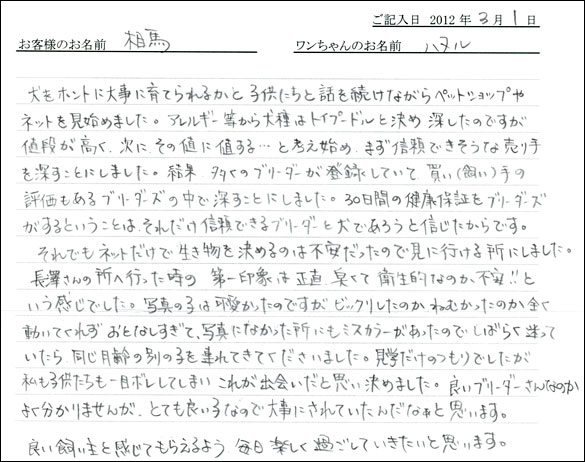 ご記入日 2012 年 3月 1日
お客様のお名前 相馬 ワンちゃんのお名前 ハヌル
犬をホントに大事に育てられるかと子供たちと話を続けながらペットショップや
ネットを見始めました。アレルギー等から犬種はトイプードルと決め 深したのですが
値段が高く、次に、その値に値する…と考え始め、まず信頼できそうな売り手
を深すことにしました。結果、多くのブリーダーが登録していて 買い(飼い)手の
評価もあるブリーダーズの中で深すことにしました。30日間の健康保証をブリーダーズ
がするということは、それだけ信頼できるブリーダーと犬であろうと信じたからです。
それでもネットだけで生き物を決めるのは不安だったので見に行ける所にしました。
長澤さんの所へ行った時の 第一印象は正直 臭くて衛生的なのか不安!!と
いう感じでした。写真の子は可愛かったのですが ビックリしたのか ねむかったのか全く
動いてくれず おとなしすぎて、写真になかった所にもミスカラーがあったので しばらく迷って
いたら 同じ月齢の別の子を連れてきてくださいました。見学だけのつもりでしたが
私も子供たちも一目ボレしてしまい これが出会いだと思い決めました。良いブリーダーさんなのか
よく分かりませんが、とても良い子なので大事にされていたんだなぁと思います。
良い飼い主と感じてもらえるよう 毎日楽しく過ごしていきたいと思います。